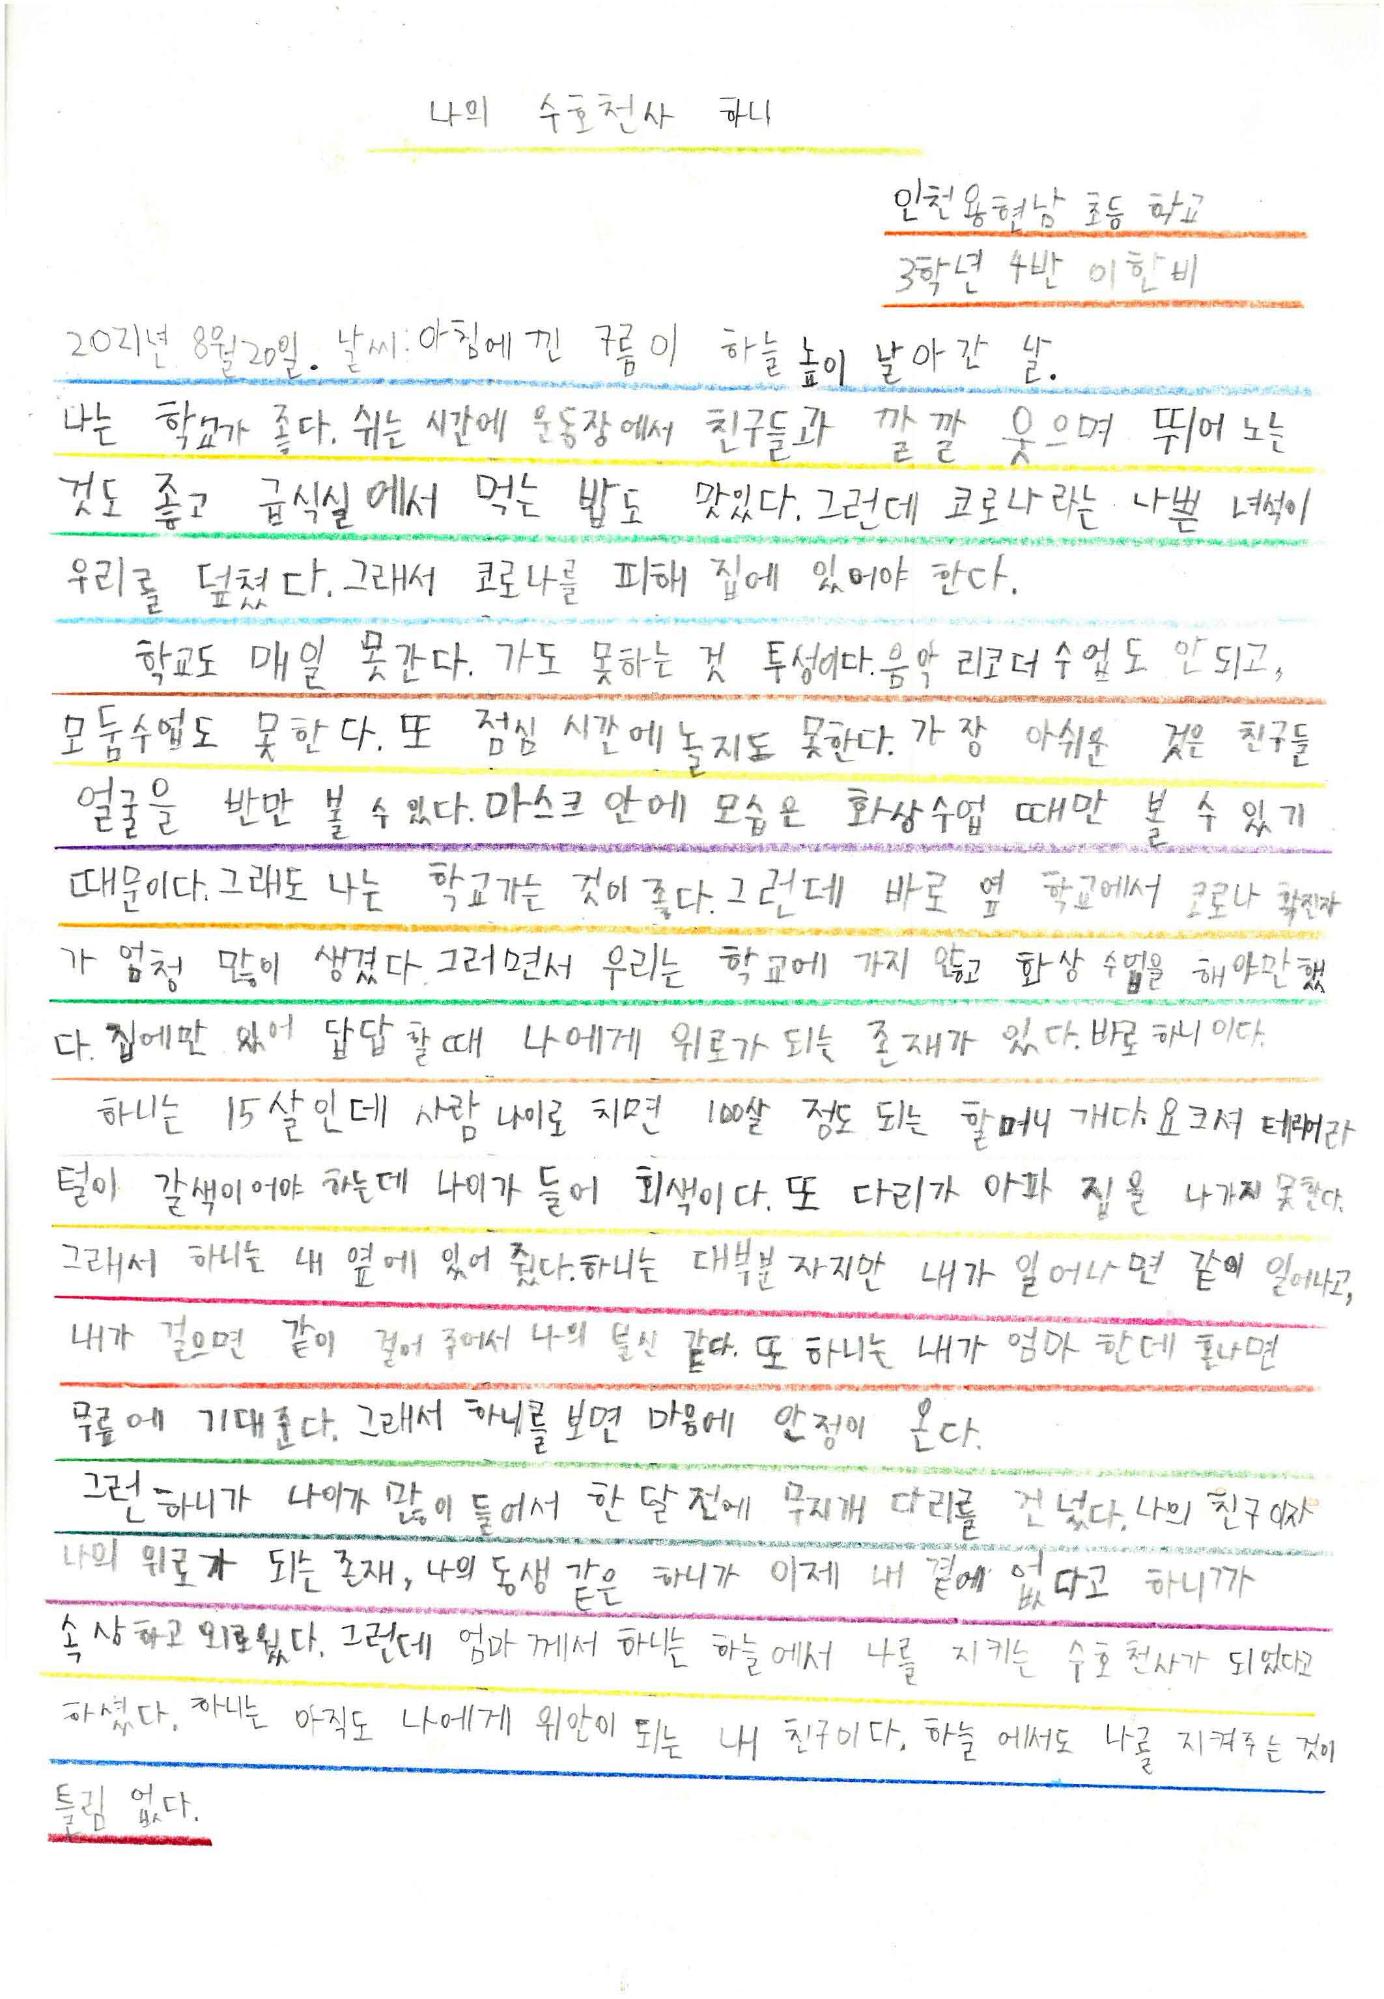 나의 수호천사 하니
인천용현남 초등 학교
3학년 4반 이한비
2021년 8월20일. 날씨:아침에 낀 구름이 하늘 높이 날아간 날.
나는 학교가 좋다. 쉬는 시간에 운동장에서 친구들과 깔깔 웃으며 뛰어 노는
것도 좋고 급식실에서 먹는 밥도 맛있다. 그런데 코로나 라는 나쁜 녀석이
우리를 덮쳤다. 그래서 코로나를 피해 집에 있어야 한다.
학교도 매일 못간다. 가도 못하는 것 투성이다. 음악 리코더 수업도 안 되고,
모둠수업도 못한다. 또 점심 시간에 놀지도 못한다. 가장 아쉬운 것은 친구들
얼굴을 반만 볼 수 있다. 마스크 안에 모습은 화상수업 때만 볼 수 있기
때문이다. 그래도 나는 학교가는 것이 좋다. 그런데 바로 옆 학교에서 코로나 확진자
가 엄청 많이 생겼다. 그러면서 우리는 학교에 가지 않고 화상 수업을 해야만 했
다. 집에만 있어 답답 할 때 나에게 위로가 되는 존재가 있다. 바로 하니 이다.
하니는 15살인데 사람 나이로 치면 100살 정도 되는 할머니 개다. 요크셔 테리어라
털이 갈색이어야 하는데 나이가 들어 회색이다. 또 다리가 아파 집을 나가지 못한다.
그래서 하니는 내 옆에 있어 줬다. 하니는 대부분 자지만 내가 일어나면 같이 일어나고,
내가 걸으면 같이 걸어 주어서 나의 분신 같다. 또 하니는 내가 엄마 한데 혼나면
무릎에 기대준다. 그래서 하니를 보면 마음에 안정이 온다.
그런 하니가 나이가 많이 들어서 한 달 전에 무지개 다리를 건넜다. 나의 친구이자
나의 위로가 되는 존재, 나의 동생 같은 하니가 이제 내 곁에 없다고 하니까
속상하고 외로웠다. 그런데 엄마께서 하니는 하늘에서 나를 지키는 수호천사가 되었다고
하셨다. 하니는 아직도 나에게 위안이 되는 내 친구이다. 하늘 에서도 나를 지켜주는 것이
틀림 없다.